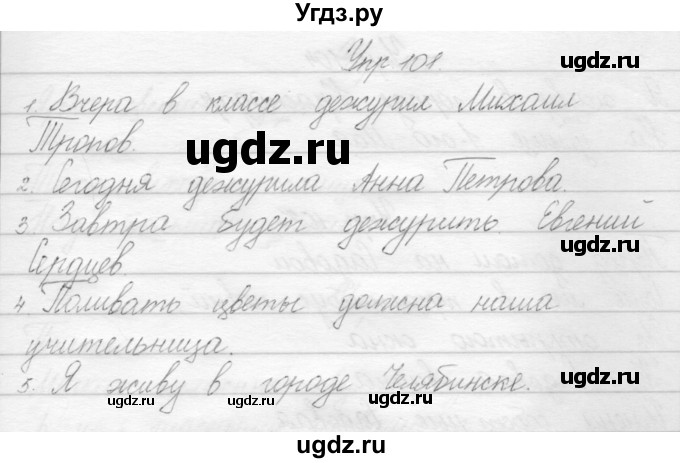 Угdз.ру
Упр 101.
1. Вчера в классе дежурил Михаил
Тропов.
2. Сегодня дежурила Анна Петрова.
3. Завтра будет дежурить Евгений
Сердцев.
4 Поливать цветы должна наша
учительница.
5. Я живу в городе Челябинске.
ugdz.ru
ugdz.ru
ugdz.ru
ugdz.ru
ugdz.ru
ugdz.ru
ugdz.ru
ugdz.ru
ugdz.ru